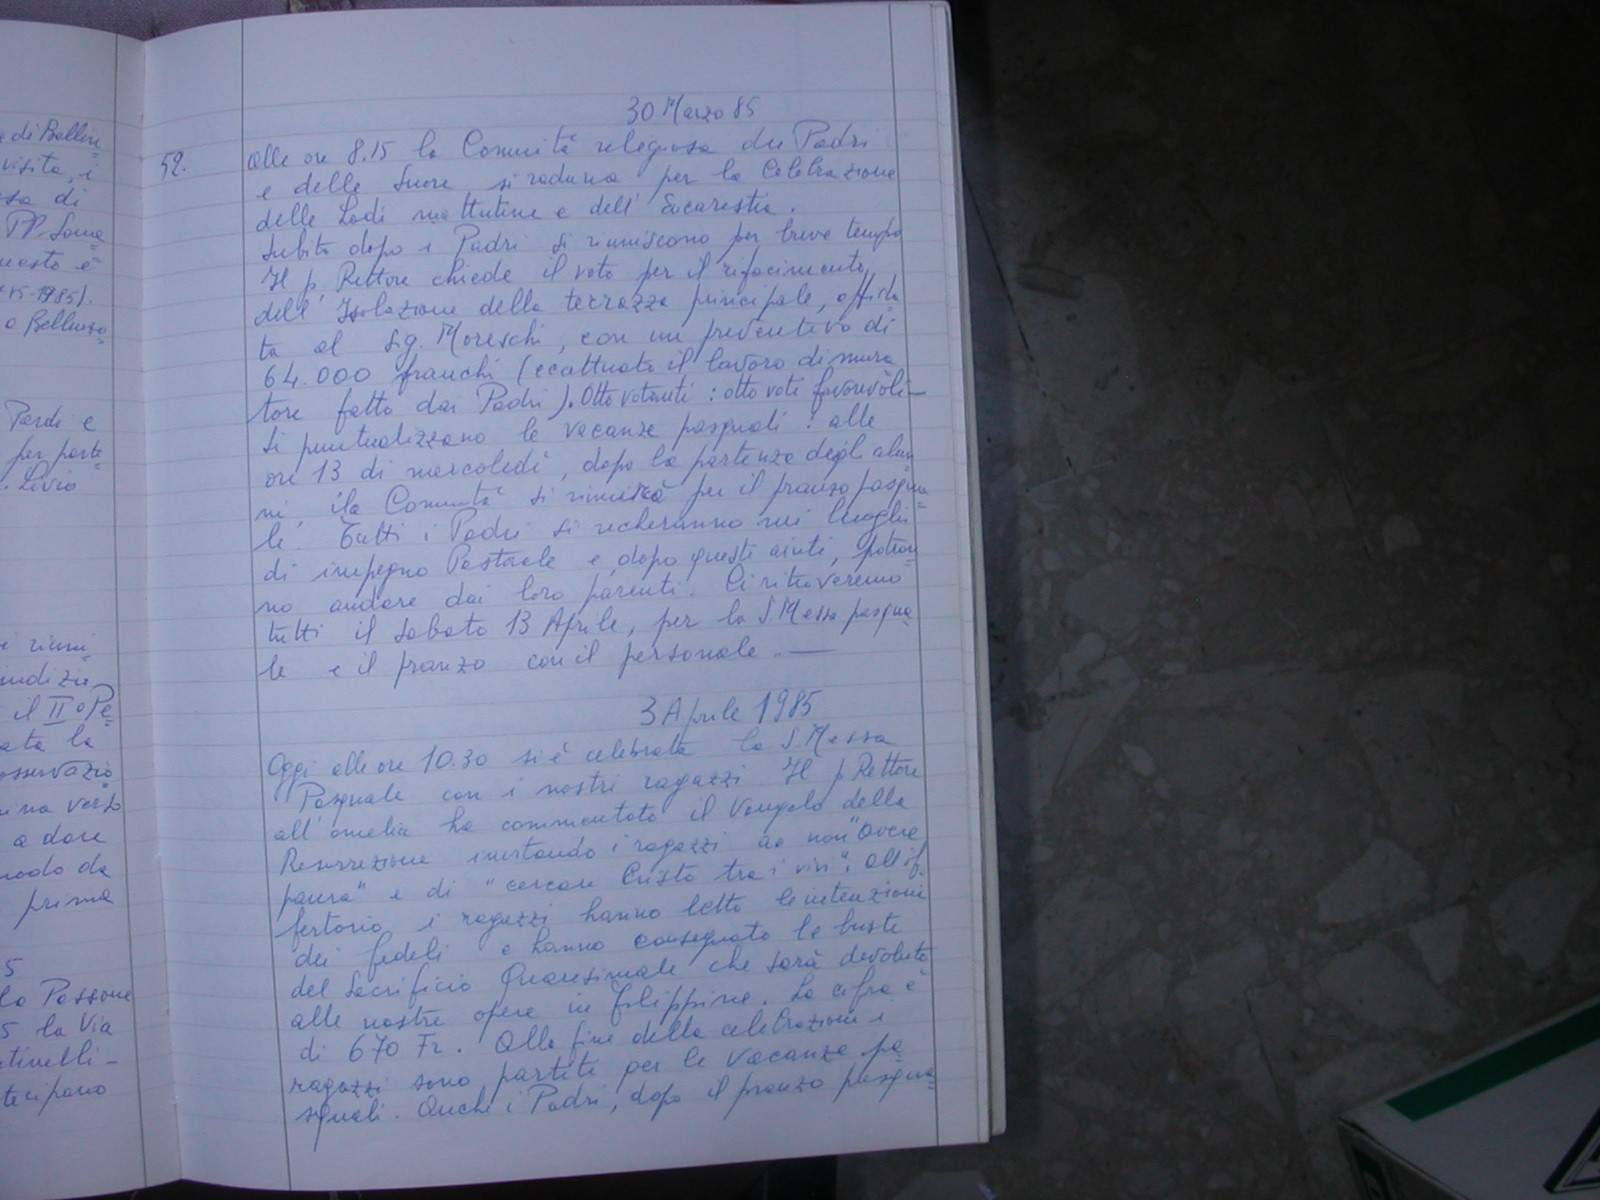 di Bellin
visita, i
sa di
PP. Soma=
uesto è
15-1985).
a Bellinzo
Pardi e
per parte
. Livio
i riuni=
indizie
il II° Pe=
ata la
osservazio
ina verso
a dare
modo da
prima
5
la Passione
5 la Via
tinelli -
tecipano
30 Marzo 85
52.
Alle ore 8.15 la Comunità religiosa dei Padri
e delle Suore si raduna per la Celebrazione
delle Lodi mattutine e dell' Eucarestia.
Subito dopo i Padri si riuniscono per breve tempo
Il p. Rettore chiede il voto per il rifacimento
dell' Isolazione della terrazza principale, affida
ta al Sig. Moreschi, con un preventivo di
64.000 franchi (eccettuato il lavoro di mura
tore fatto dai Padri). Otto votanti: otto voti favorevoli -
Si puntualizzano le vacanze pasquali: alle
ore 13 di mercoledì, dopo la partenza degli alun
ni, la Comunità si riunirà per il pranzo pasqua=
le. Tutti i Padri si recheranno nei luoghi
di impegno Pastorale e, dopo questi aiuti, potran=
no andare dai loro parenti. Ci ritroveremo
tutti il Sabato 13 Aprile, per la S. Messa pasqua=
le e il pranzo con il personale. —
3 Aprile 1985
Oggi alle ore 10.30 si è celebrata la S. Messa
Pasquale con i nostri ragazzi Il p Rettore
all' omelia ha commentato il Vangelo della
Resurrezione invitando i ragazzi a non "avere
paura" e di "cercare Cristo tra i vivi". All' of
fertorio i ragazzi hanno letto le intenzioni
dei fedeli e hanno consegnato le buste
del Sacrificio Quaresimale che sarà devoluto
alle nostre opere in Filippine. La cifra è
di 670 Fr. Alla fine della celebrazione i
ragazzi sono partiti per le vacanze pa
squali. Anche i Padri, dopo il pranzo pasqua=